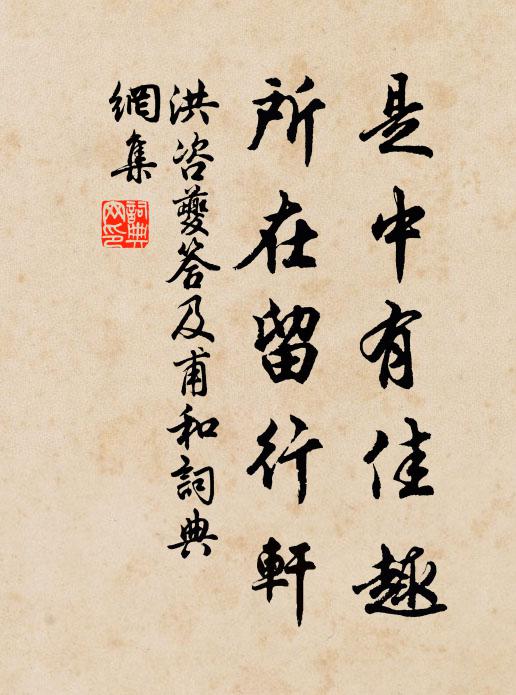 是中有佳趣
所在留行軒
洪咨夔答及甫和詞典
網集
詞典
网印